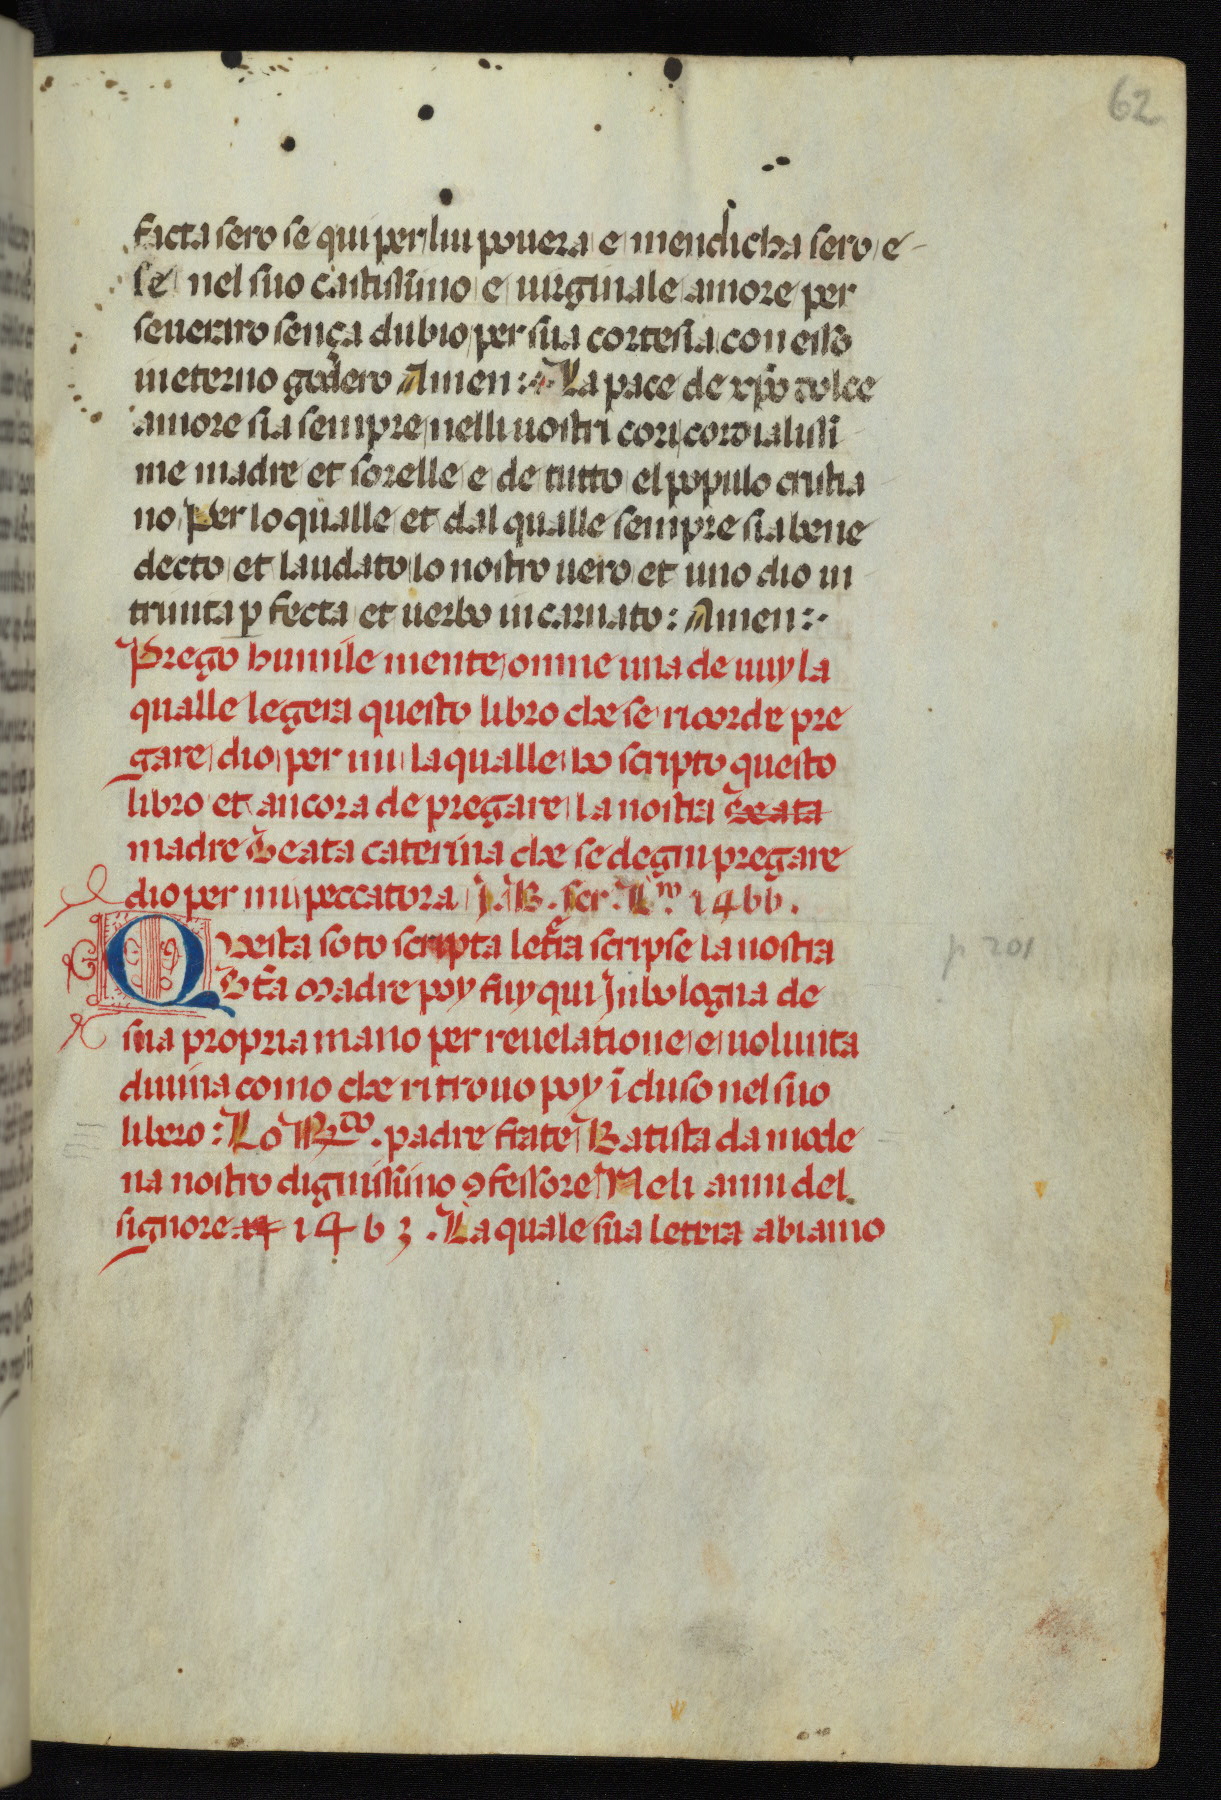 62
facta sero se qui per lui pouera e mendicha sero e
se nel suo castissimo e uirginale amore per
seueraro sença dubio per sua cortesia con esso
in eterno godero Amen :· La pace de xp̄o dolce
amore sia sempre nelli nostri cori cordialissi
me madre et sorelle e de tutto el populo cristia
no Per lo qualle et dal qualle sempre sia bene
decto et laudato lo nostro uero et uno dio in
trinita ꝑfecta et uerbo incarnato: Amen :·
Prego humile mente omne una de uuy la
qualle legera questo libro che se ricorde pre
gare dio per mi la qualle ho scripto questo
libro et ancora de pregare la nostra beata
madre Beata caterina che se degni pregare
dio per mi peccatora J. B. scr. 1466.
Questa soto scripta letr̄a scripse la nostra
B̄ta madre poy fuy qui Jn bologna de
sua propria mano per reuelatione e uolunta
diuina como che ritrouo poy ī cluso nel suo
libero: Lo R.do padre frate Batista da mode
na nostro dignissimo ꝯfessore Neli anni del
signore 14 1463. La quale sua letera abiamo
p 201